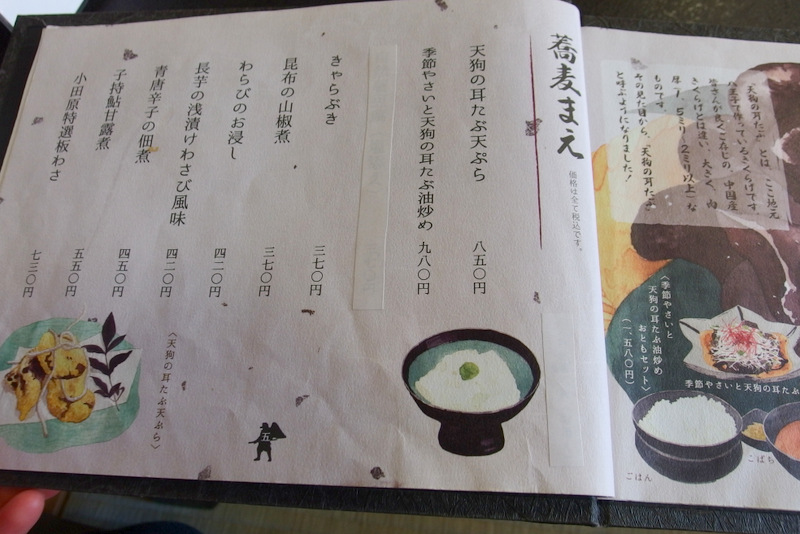 蕎麦まえ
価格は全て税込です。
天狗の耳たぶ天ぷら 八五〇円
季節やさいと天狗の耳たぶ油炒め 九八〇円
きゃらぶき 三七〇円
昆布の山椒煮 三七〇円
わらびのお浸し 四二〇円
長芋の浅漬けわさび風味 四二〇円
青唐辛子の佃煮 四五〇円
子持鮎甘露煮 五五〇円
小田原特選板わさ 七三〇円
〈天狗の耳たぶ天ぷら〉
五
「天狗の耳たぶ」とは、ここ地元
八王子で作っているきくらげです。
皆さんが良くご存じの、中国産
きくらげとは違い、大きく、肉
厚（1.5ミリ〜2ミリ以上）な
ものです。
その見た目から、「天狗の耳たぶ」
と呼ぶようになりました！
〈季節やさいと
天狗の耳たぶ油炒め
おともセット〉
（一、五八〇円）
季節やさいと天狗の耳たぶ
ごはん
こばち